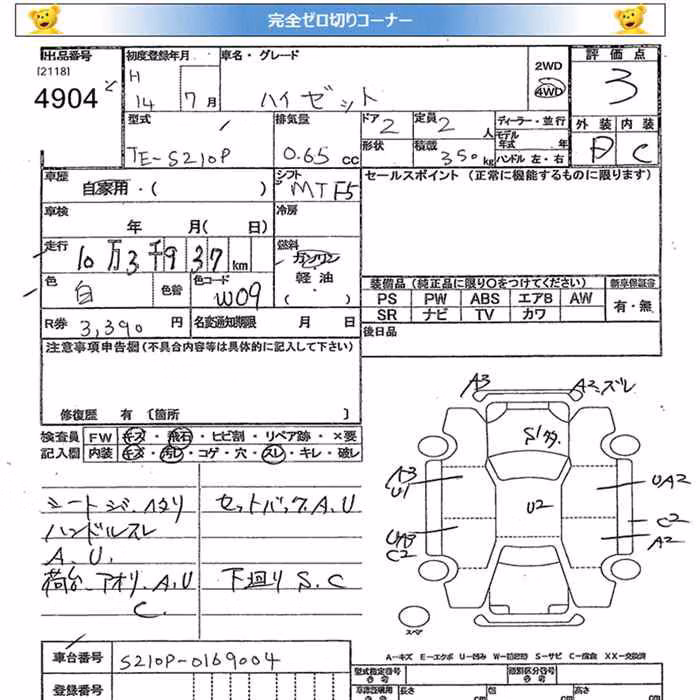 完全ゼロ切りコーナー
出品番号
[2118]
4904
初度登録年月
H
14 7月
車名・グレード
ハイゼット
2WD
4WD
評価点
3
型式
TE-S210P
排気量
0.65 cc
ドア 2
定員 2 人
形状
積載 350 kg
ディーラー・並行
モデル年式 年
ハンドル 左・右
外装
内装
C
車歴
自家用・( )
シフト
MT F5
セールスポイント (正常に機能するものに限ります)
車検
年 月( 日)
冷房
走行
10万3千937km
燃料
ガソリン
軽油
・( )
色
白
色替
色コード
W09
装備品 (純正品に限り○をつけてください)
新車保証書
PS PW ABS エアB AW
SR ナビ TV カワ
有・無
R券 3,390 円
名変通知期限 月 日
後日品
注意事項申告欄 (不具合内容等は具体的に記入して下さい)
修復歴 有 〔箇所 〕
検査員
記入欄
FW キズ・飛石・ヒビ割・リペア跡・×要
内装 キズ・汚レ・コゲ・穴・スレ・キレ・破レ
シートジ.ハタリ
ハンドルスレ
A.U.
荷台.アオリ.A.U
C.
セットバック.A.U
下廻り S.C
A3
A2ズレ
A3
U1
UA2
U2
UA3
C2
C2
A2
スペア
A－キズ E－エクボ U－凹み S－サビ C－腐食 XX－交換済
車台番号
S210P-0169004
登録番号
型式指定番号
類別区分番号
長さ
cm
巾
cm
高さ
cm